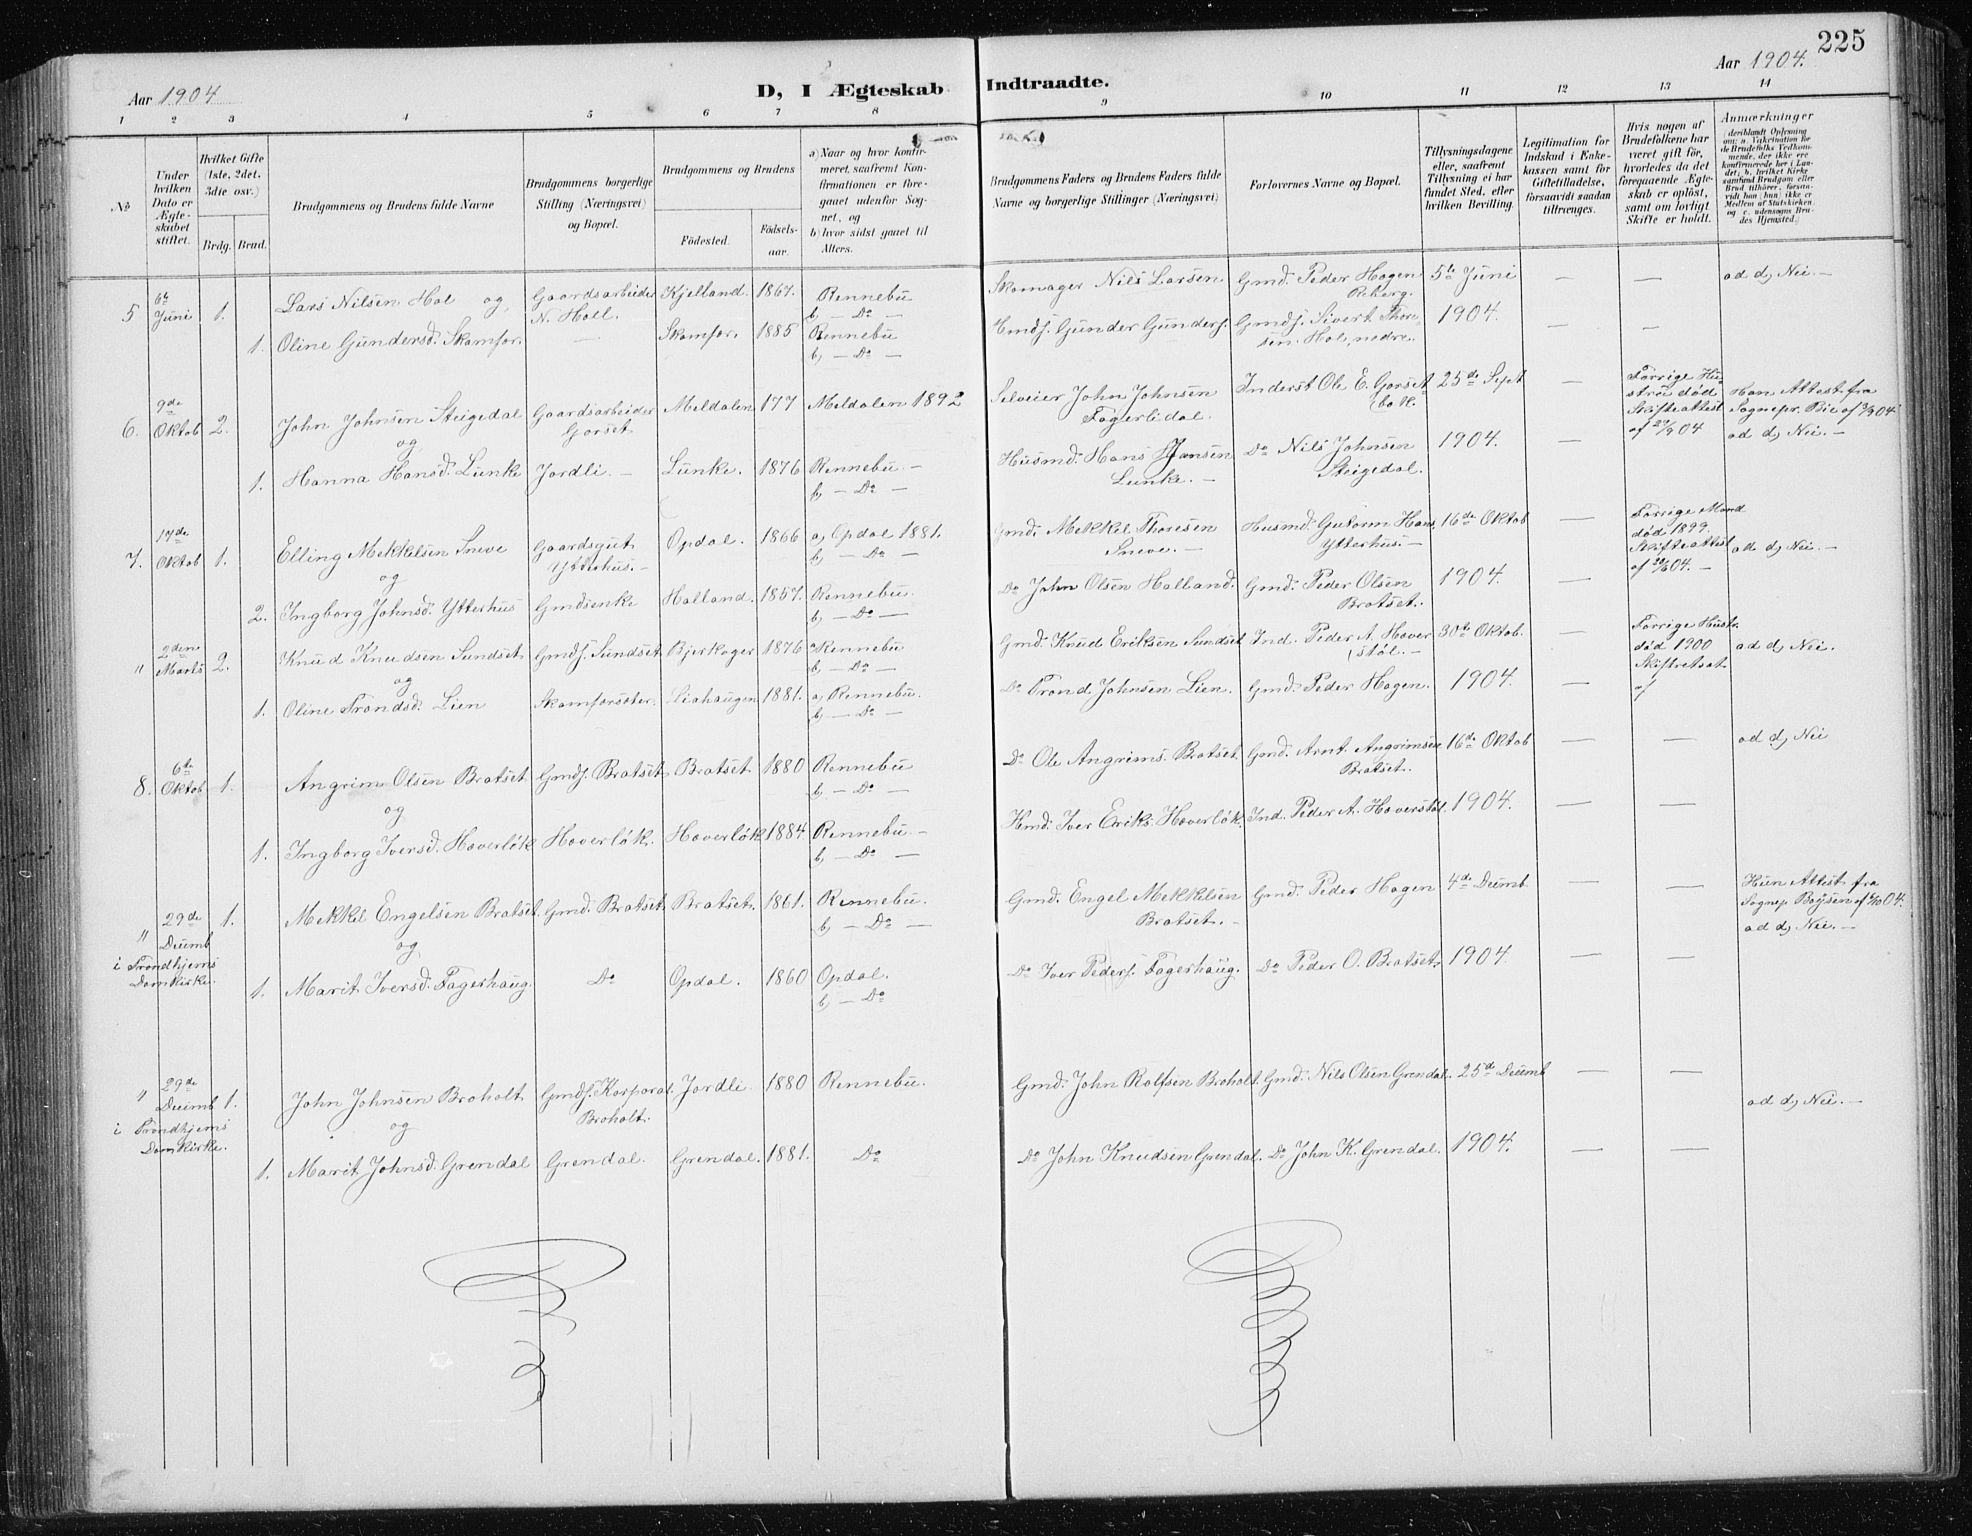 225
Aar 1904
D, I Ægteskab Indtraadte.
Aar 1904.
1 2 3 4 5 6 7 8 9 10 11 12 13 14
№
Under hvilken Dato er Ægteskabet stiftet.
Hvilket Gifte (1ste, 2det, 3die osv.)
Brdg. Brud.
Brudgommens og Brudens fulde Navne
Brudgommens borgerlige Stilling (Næringsvei) og Bopæl.
Brudgommens og Brudens
Fødested. Fødselsaar.
a) Naar og hvor konfirmeret, saafremt Konfirmationen er foregaaet udenfor Sognet, og
b) hvor sidst gaaet til Alters.
Brudgommens Faders og Brudens Faders fulde Navne og borgerlige Stillinger (Næringsvei)
Forlovernes Navne og Bopæl.
Tillysningsdagene eller, saafremt Tillysning ei har fundet Sted, efter hvilken Bevilling.
Legitimation for Indskud i Enkekassen samt for Giftetilladelse, forsaavidt saadan tiltrænges.
Hvis nogen af Brudefolkene har været gift før, hvorledes da det foregaaende Ægteskab er opløst, samt om lovligt Skifte er holdt.
Anmærkninger
(deriblandt Oplysning om: a. Vakcination for de Brudefolks Vedkommende, der ikke ere konfirmerede her i Landet; b. hvilket Kirkesamfund Brudgom eller Brud tilhører, forsaavidt han (hun) ikke er Medlem af Statskirken, og c. udensogns Brudes Hjemsted.)
5 6te Juni 1. Lars Nilsen Hol og Gaardsarbeider N. Holl. Kjelland. 1867. Rennebu b, — Do — Skomager Nils Larsen Gmd. Peder Hagen Reberg. 5te Juni — — ad d, Nei. —
1. Oline Gundersd. Skamfor. — Skamfor. 1885 Rennebu b, — Do — Hmds. Gunder Gunders. Gmds. Sivert Thoresen Hol, nedre. 1904. — —
6. 9de Oktob 2. John Johnsen Steigedal og Gaardsarbeider Gorset Meldalen 177 Meldalen 1892 Selveier John Johnsen Fagerlidal. Inderst Ole E. Gorset 25de Sept — Forrige Hustru død Skifteattest af 29/9 04 Han Attest fra Sognepr. Bie af 3/9 04 ad d, Nei. —
1. Hanna Hansd. Lunke Jordli. — Lunke. 1876 Rennebu. — b, — Do — Husmd. Hans Hansen Lunke. — Do Nils Johnsen Steigedal. 1904. —
7. 17de Oktob 1. Elling Mekkelsen Sneve og Gaardsgut Ytterhus. — Opdal. 1866 a, Opdal 1881. b, — Do — Gmd. Mekkel Thoresen Sneve. — Husmd. Gutorm Hans. Ytterhus. — 16de Oktob — Forrige Mand død 1899. Skifteattest af 04. — ad d, Nei. —
2. Ingborg Johnsd. Ytterhus Gmdsenke Halland. 1857. Rennebu. b, — Do — Do John Olsen Halland. Gmd. Peder Olsen Bratset. 1904. —
" 2den Marts 2. Knud Knudsen Sundset og Gmds. Sundset Bjerkager 1876 a, Rennebu b, — Do — Gmd. Knud Eriksen Sundset Ind. Peder A. Haverstøl. — 30te Oktob. — Forrige Hustr. død 1900 af ad d, Nei.
1. Oline Trondsd. Lien Skamforsæter. Liahaugen 1881. a, Rennebu. b, — Do — Do Trond Johnsen Lien. Gmd. Peder Hagen. 1904. —
8. 6te Oktob 1. Angrim Olsen Bratset og Gmds. Bratset Bratset 1880 Rennebu b, — Do — Do Ole Angrims. Bratset Gmd. Arnt Angrimsen Bratset. 16de Oktob — — ad d, Nei
1. Ingborg Iversd. Haverløk Haverløk. Haverløk 1884 Rennebu — b, — Do — Hmd. Iver Eriks. Haverløk. Ind. Peder A. Haverstøl. 1904. — —
" 29de Decemb i Trondhjems Domkirke. 1. Mekkel Engelsen Bratset og Gmd. Bratset Bratset. 1861. Rennebu. b, — Do — Gmd. Engel Mekkelsen Bratset. — Gmd. Peder Hagen 4de Decemb — — Hun Attest fra Sognep Boÿsen af 04. ad d, Nei. —
1. Marit Iversd. Fagerhaug. Do Opdal. 1860 Opdal. b, — Do Do Iver Peders. Fagerhaug. Do Peder O. Bratset. 1904. — —
" 29de Decemb i Trondhjems Domkirke. 1. John Johnsen Broholt og Gmds. Korporal Broholt. Jordli 1880 Rennebu. Gmd. John Rolfsen Broholt. Gmd. Nils Olsen Grendal. 25de Decemb — — ad d, Nei. —
1. Marit Johnsd. Grendal Grendal. Grendal. 1881. Do Do John Knudsen Grendal. Do John K. Grendal. 1904. — —